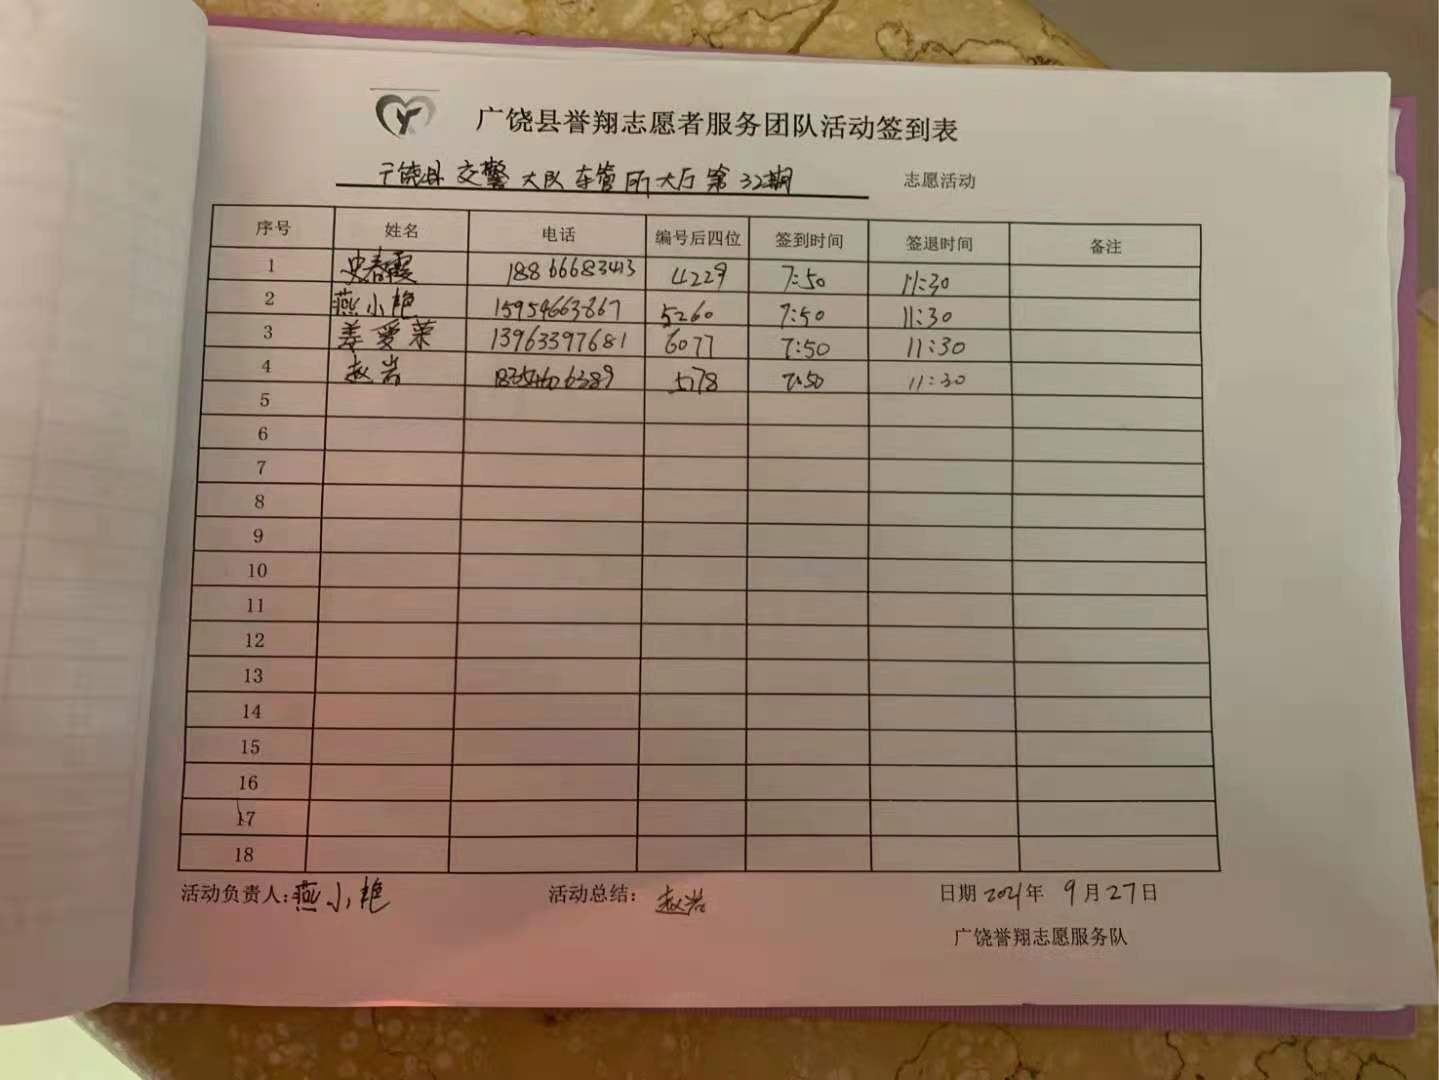 广饶县誉翔志愿者服务团队活动签到表
广饶县交警大队车管所大厅第32期 志愿活动
序号 姓名 电话 编号后四位 签到时间 签退时间 备注
1 史春霞 18866683413 4229 7:50 11:30
2 燕小艳 15954663867 5260 7:50 11:30
3 姜爱荣 13963397681 6077 7:50 11:30
4 赵岩 18354606389 5178 7:50 11:30
5
6
7
8
9
10
11
12
13
14
15
16
17
18
活动负责人:燕小艳 活动总结: 赵岩 日期 2021年 9月27日
广饶誉翔志愿服务队